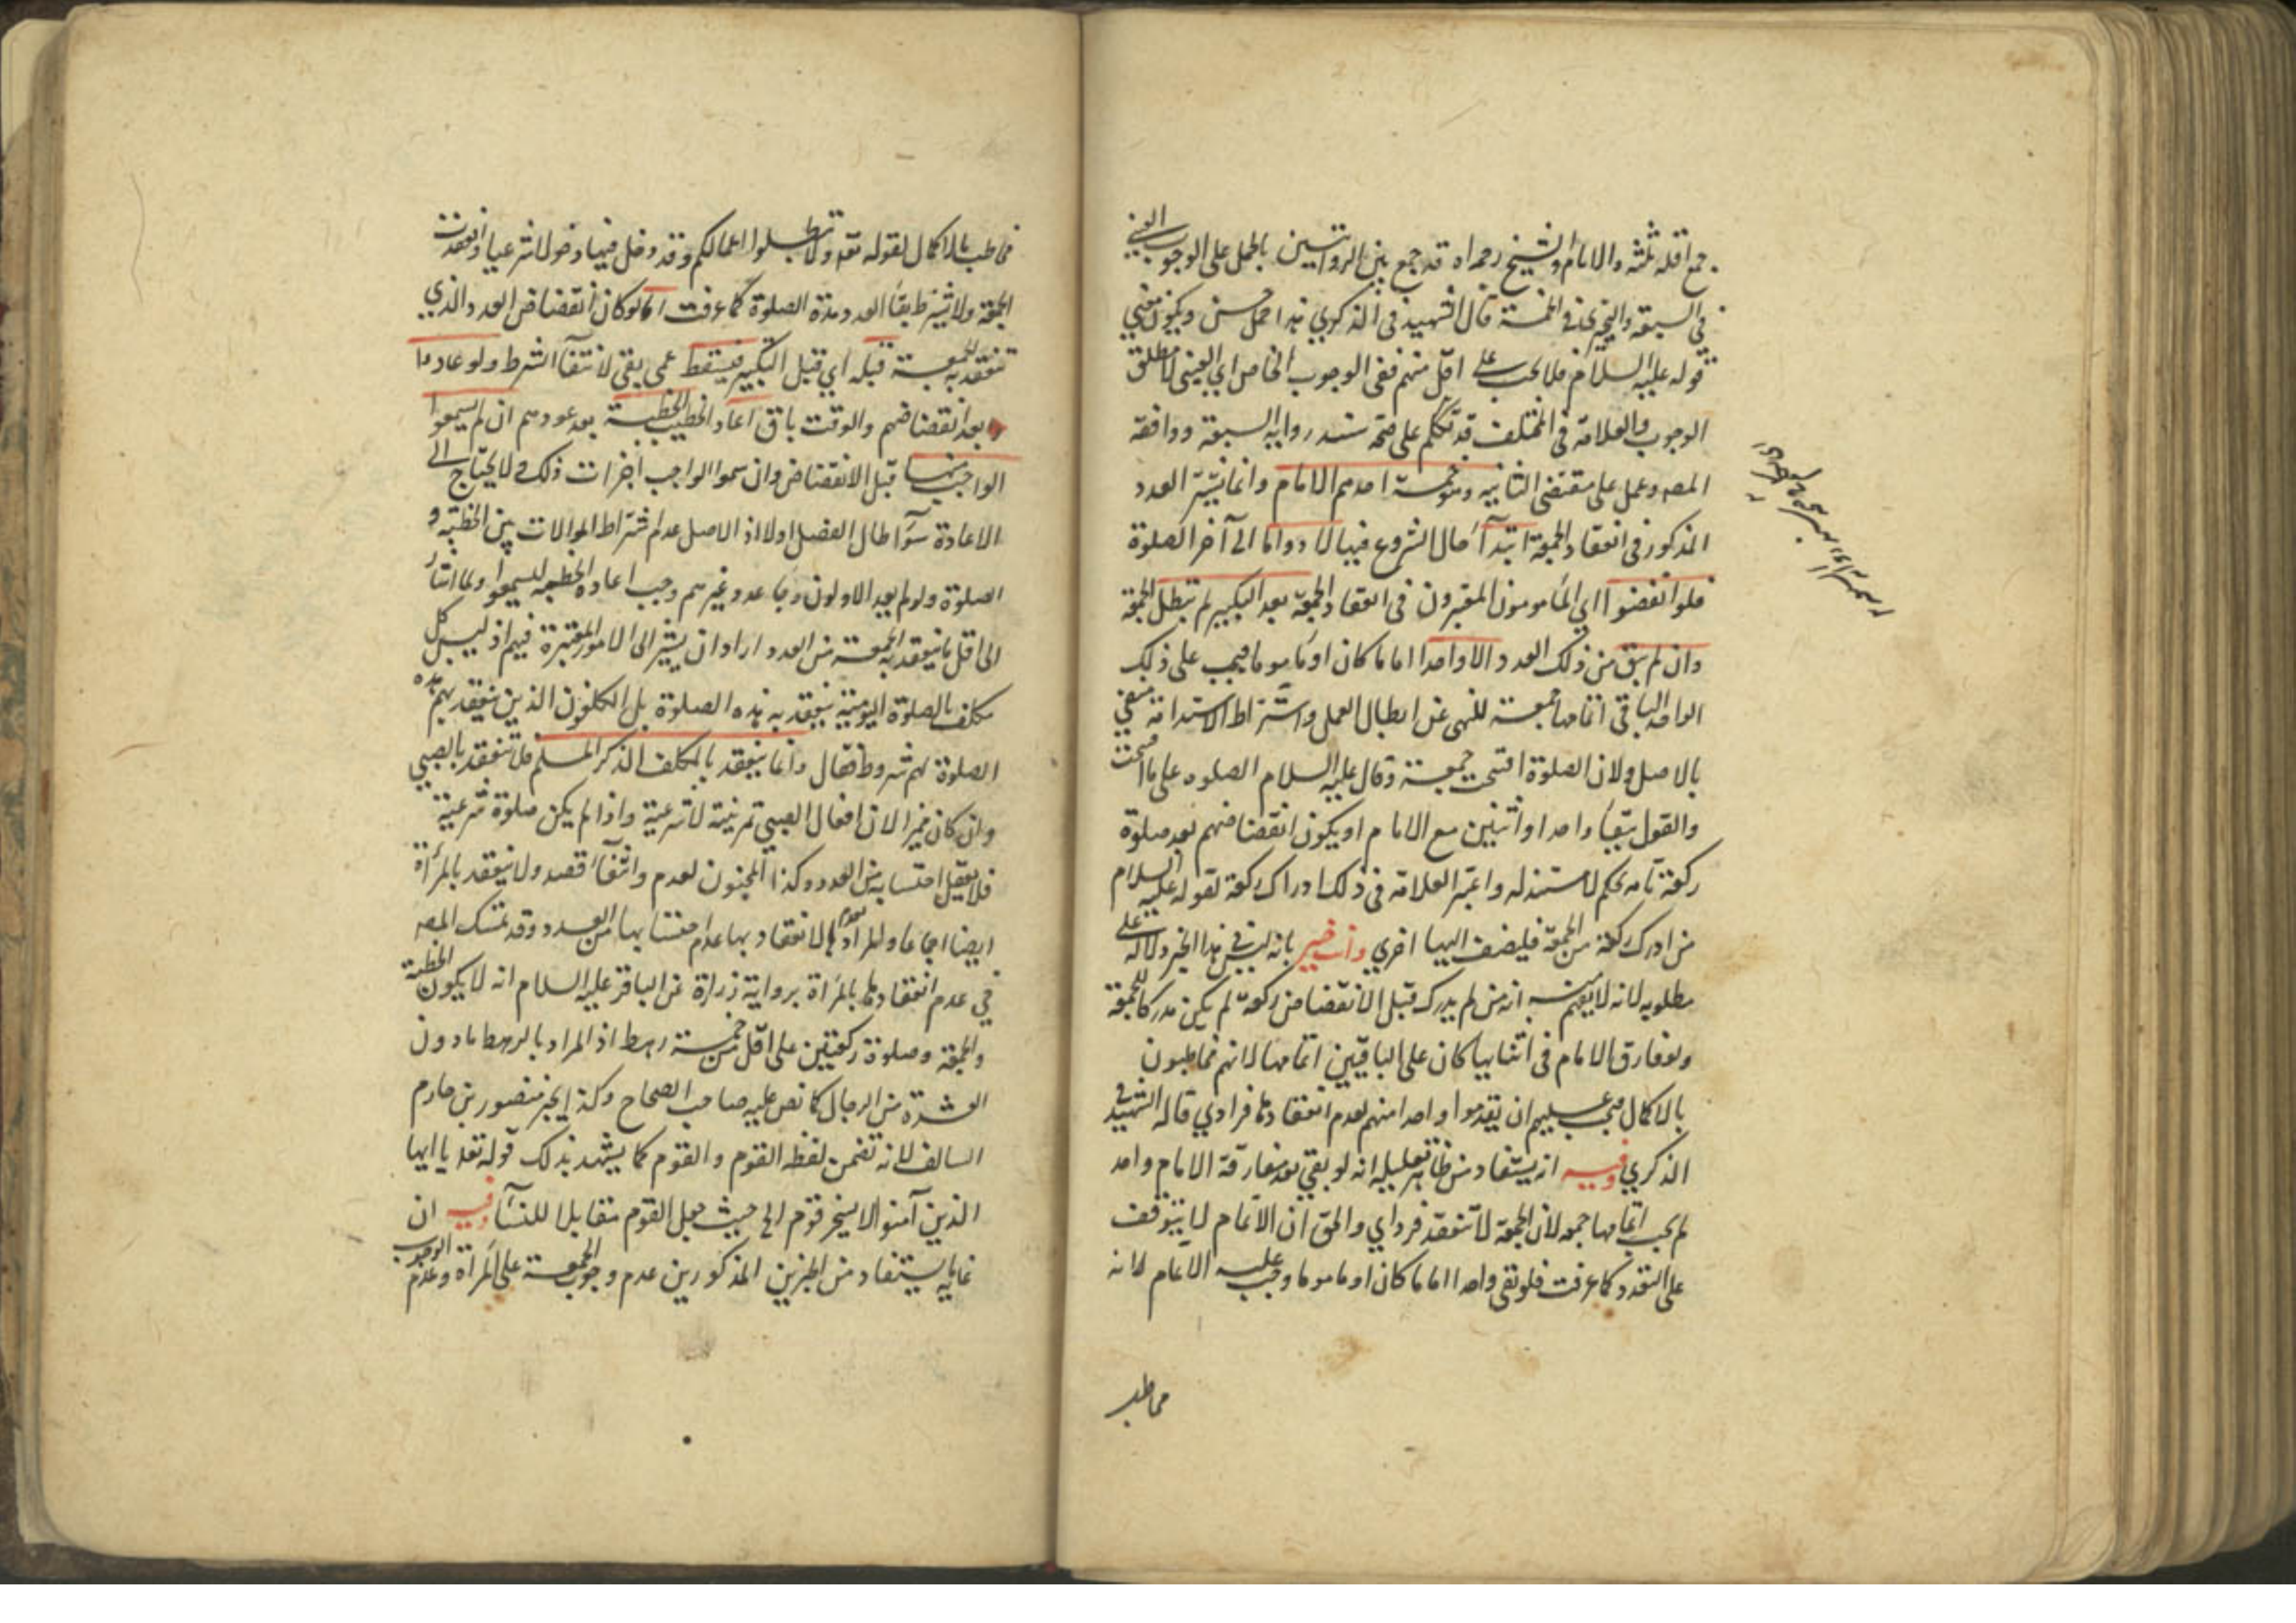 جمع اقله ثلثه والامام والشيخ رحمه اه قد جمع بين الروايتين بالحمل على الوجوب العيني
في السبعة والتخيري في الخمسة قال الشهيد في الذكري هذا حمل حسن ويكون معني
قوله عليه السلام فلا يجب على اقل منهم نفى الوجوب الخاص اي العيني لا مطلق
الوجوب والعلامة في المختلف قد تكلم على صحة سند رواية السبعة ووافقه
المصه وعمل على مقتضى الثانيه وهو خمسة احدهم الامام وانما يشترط العدد
المذكور في انعقاد الجمعة ابتدآء حال الشروع فيها لا دواما الى آخر الصلوة
فلو انفضوا اي المامومون المعتبرون في انعقاد الجمعة بعد التكبير لم تبطل الجمعة
وان لم يبق من ذلك العدد الا واحدا اماما كان او ماموما فيجب على ذلك
الواحد الباقي اتمامها جمعة للنهى عن ابطال العمل واشتراط الاستدامة منفي
بالاصل ولان الصلوة افتتحت جمعة وقال عليه السلام الصلوه على ما افتتحت
والقول ببقاء واحد او اثنين مع الامام او يكون انفضاضهم بعد صلوة
ركعة تامه تحكم لا مستند له واعتبر العلامة في ذلك ادراك ركعة لقوله عليه السلام
من ادرك ركعة من الجمعة فليضف اليها اخري وانت خبير بانه ليس في هذا الخبر دلالة على
مطلوبه لانه لا يفهم منه انه من لم يدرك قبل الانفضاض ركعة لم يكن مدركا للجمعة
ولو فارق الامام في اثنايها كان على الباقيين اتمامها لانهم مخاطبون
بالاكمال فيجب عليهم ان يقدموا واحدا منهم لعدم انعقادها فرادي قاله الشهيد في
الذكري وفيه انه يستفاد من ظاهر تعليله انه لو بقي بعد مفارقة الامام واحد
لم يجب اتمامها جمعه لان الجمعة لا تنعقد فرداي والحق ان الاتمام لا يتوقف
على التعدد كما عرفت فلو بقى واحدا اماما كان او ماموما وجب عليه الاتمام لانه
مخاطب
مخاطب بالاكمال لقوله تعه ولا تبطلوا اعمالكم وقد دخل فيها دخولا شرعيا وانعقدت
الجمعة ولا يشترط بقاء العدد مدة الصلوة كما عرفت اما لو كان انفضاض العدد الذي
تنعقد به الجمعة قبله اي قبل التكبير فيسقط عمن بقي لانتفآء الشرط ولو عادوا
بعد انفضاضهم والوقت باق اعاد الخطيب الخطبة بعد عودهم ان لم يسمعوا
الواجب منها قبل الانفضاض وان سمعوا الواجب اجزات ذلك لا يحتاج الى
الاعادة سوآء طال الفصل اولا اذ الاصل عدم اشتراط الموالات بين الخطبة و
الصلوة ولو لم يعد الاولون وجا عدد غيرهم وجب اعادة الخطبه ليسمعوا ولما اشار
الى اقل ما ينعقد به الجمعة من العدد اراد ان يشير الى الامور المعتبرة فيهم اذ ليس كل
مكلف بالصلوة اليومية ينعقد به هذه الصلوة بل المكلفون الذين ينعقد بهم هذه
الصلوة لهم شروط فقال وانما ينعقد بالمكلف الذكر المسلم فلا تنعقد بالصبي
وان كان مميزا لان افعال الصبي تمرينية لا شرعية واذا لم يكن صلوة شرعية
فلا يعقل احتسابه من العدد وكذا المجنون لعدم وانتفآء قصده ولا ينعقد بالمرأة
ايضا اجماعا والمراد بعدم الانعقاد بها عدم احتسابها من العدد وقد تمسك المصه
في عدم انعقادها بالمرأة برواية زرارة عن الباقر عليه السلام انه لا يكون الخطبة
والجمعة وصلوة ركعتين على اقل من خمسة رهط اذ المراد بالرهط ما دون
العشرة من الرجال كما نص عليه صاحب الصحاح وكذا بخبر منصور بن حازم
السالف لانه تضمن لفظة القوم والقوم كما يشهد بذلك قوله تعه يا ايها
الذين آمنوا لا يسخر قوم الخ حيث جعل القوم مقابلا للنسآء وفيه ان
غاية ما يستفاد من الخبرين المذكورين عدم وجوب الجمعة على المرأة وعدم الوجوب